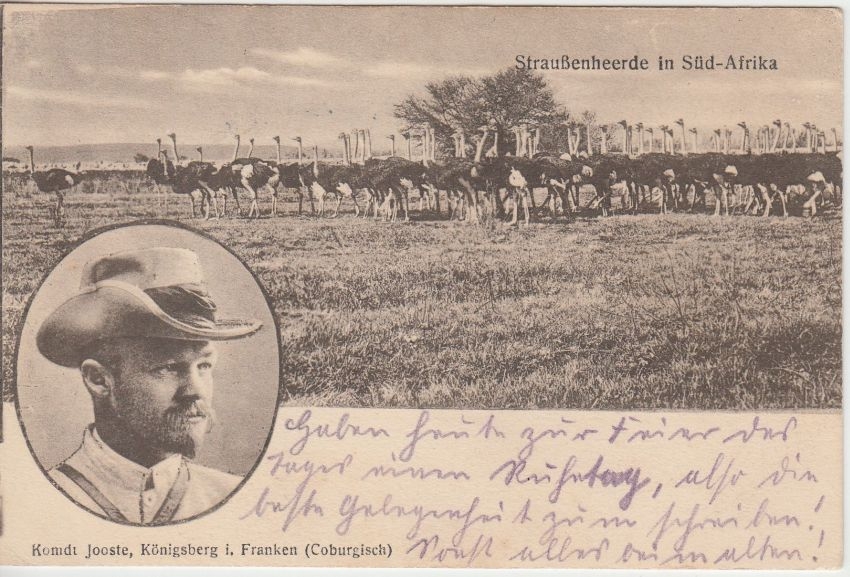 Straußenheerde in Süd-Afrika
Haben heute zur Feier des
Tages einen Ruhetag, also die
beste Gelegenheit zum schreiben!
Sonst alles beim alten!
Komdt Jooste, Königsberg i. Franken (Coburgisch)